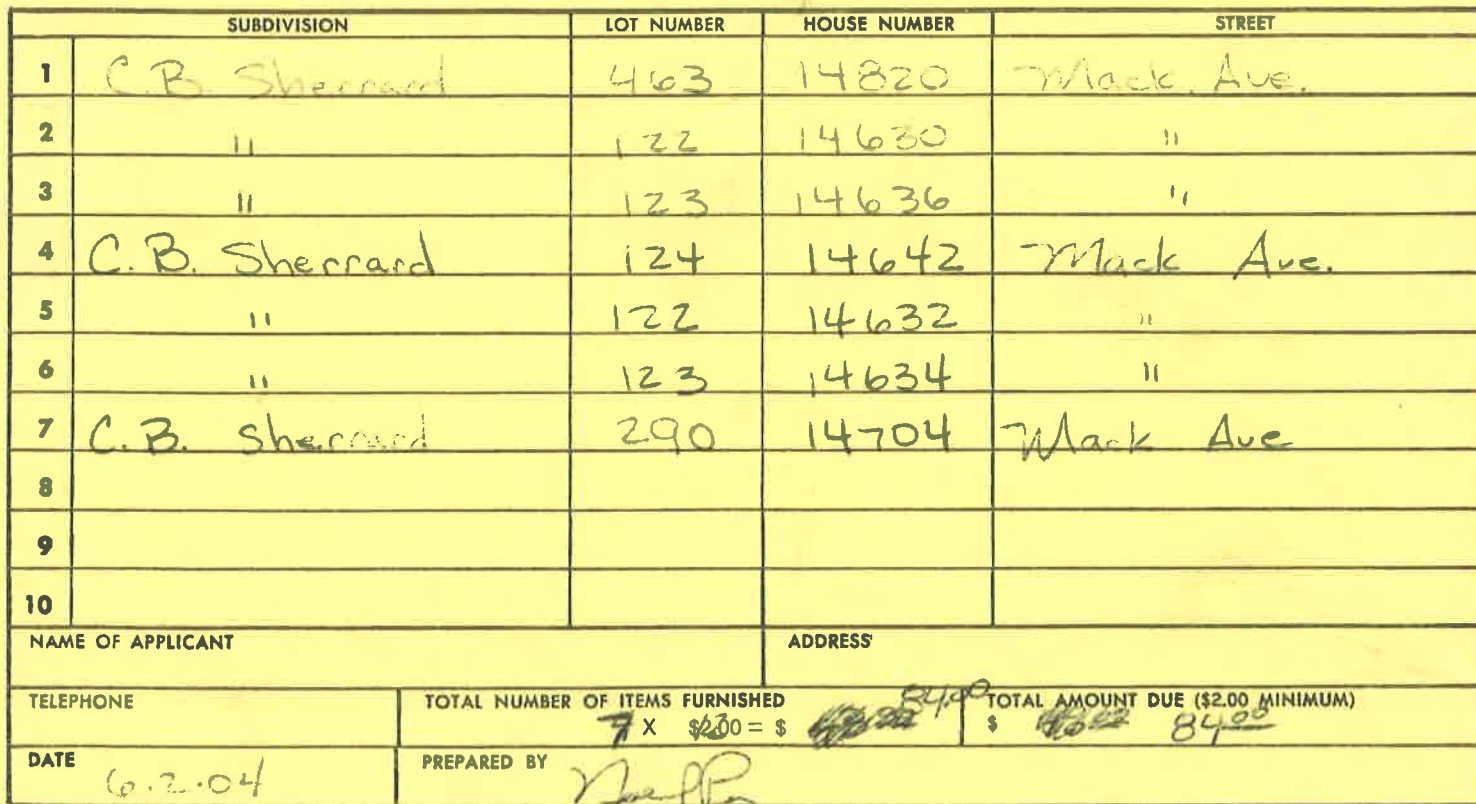 SUBDIVISION LOT NUMBER HOUSE NUMBER STREET
1 C.B. Sherrard 463 14820 Mack Ave.
2 " 122 14630 "
3 " 123 14636 "
4 C.B. Sherrard 124 14642 Mack Ave.
5 " 122 14632 "
6 " 123 14634 "
7 C.B. Sherrard 290 14704 Mack Ave
8
9
10
NAME OF APPLICANT ADDRESS
TELEPHONE TOTAL NUMBER OF ITEMS FURNISHED 84.00 TOTAL AMOUNT DUE ($2.00 MINIMUM)
7 X $2.00 = $ $ 84.00
DATE 6.2.04 PREPARED BY